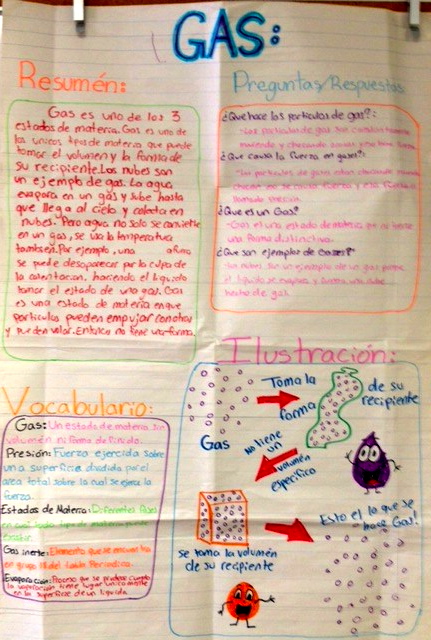 GAS:
Resumén:
Gas es uno de los 3
estados de materia. Gas es uno de
los unicos tipos de materia que puede
tomar el volumen y la forma de
su recipiente. Los nubes son
un ejemplo de gas. La agua
evapora en un gas y sube hasta
que llega al cielo y colecta en
nubes. Pero agua no solo se convierte
en un gas, se usa la temperatura
tambien. Por ejemplo, una
se puede desaparecer por la culpa de
la calentacion, haciendo el liquido
tomar el estado de una gas. Gas
es una estado de materia en que
particulas pueden empujar con otras
y pueden volar. Entonce no tiene una forma.
Preguntas/Respuestas
¿Que hace las particulas de gas?:
Las particulas de gas
¿Que causa la fuerza en gases?:
las particulas de gases estan chocando
se causa fuerza y esa fuerza
llamado presion.
¿Que es un Gas?
Gas es una estado de materia que no tiene
una forma distinctiva.
¿Que son ejemplos de Gases?
Las nubes son un ejemplo de un gas porque
el liquido se evapora y
hecho de gas.
Vocabulario:
Gas: Un estado de materia sin
volumén ni forma definido.
Presión: Fuerza ejercida sobre
una superficie dividida por el
area total sobre la cual se ejerce la
fuerza.
Estados de Materia: Diferentes fases
en cual todo tipo de materia puede
existir.
Gas inerte: Elemento que se encuentra
en grupo 18 del tabla Periodica.
Evaporacion: Proceso que se produce cuando
la vaporación tiene lugar unicamente
en la superficie de un liquido.
Ilustración:
Gas
Toma la
forma
de su
recipiente
No tiene
un
volumén
especifico
se toma la volumén
de su recipiente
Esto el lo que se
hace Gas!